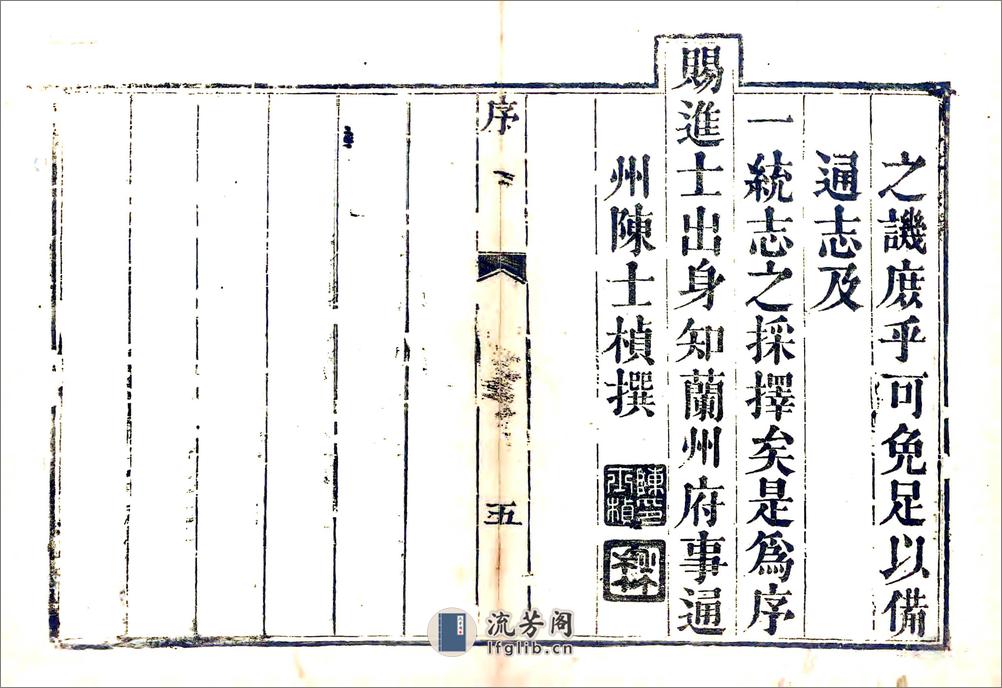 之譏庶乎可免足以備
通志及
一統志之採擇矣是爲序
賜進士出身知蘭州府事通
州陳士楨撰
陳士楨印
序
五
流芳阁
lfglib.cn